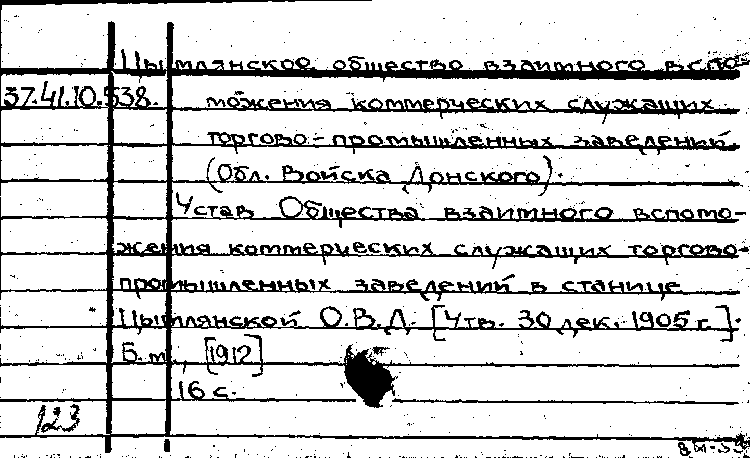 Цымлянское общество взаимного вспо-
37.41.10.538. можения коммерческих служащих
торгово-промышленных заведений.
(Обл. Войска Донского).
Устав Общества взаимного вспомо-
жения коммерческих служащих торгово-
промышленных заведений в станице
Цымлянской О.В.Д. [Утв. 30 дек. 1905 г.].
Б.м., [1912]
16 с.
123